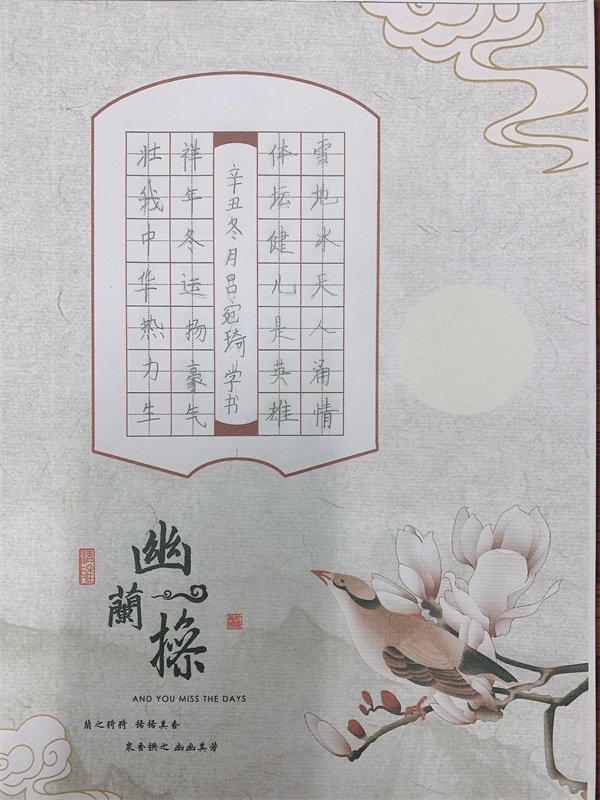 雪地冰天人涌情
体坛健儿是英雄
辛丑冬月吕宛琦学书
祥年冬运扬豪气
壮我中华热力生
幽蘭操
AND YOU MISS THE DAYS
蘭之猗猗 揚揚其香
眾香拱之 幽幽其芳